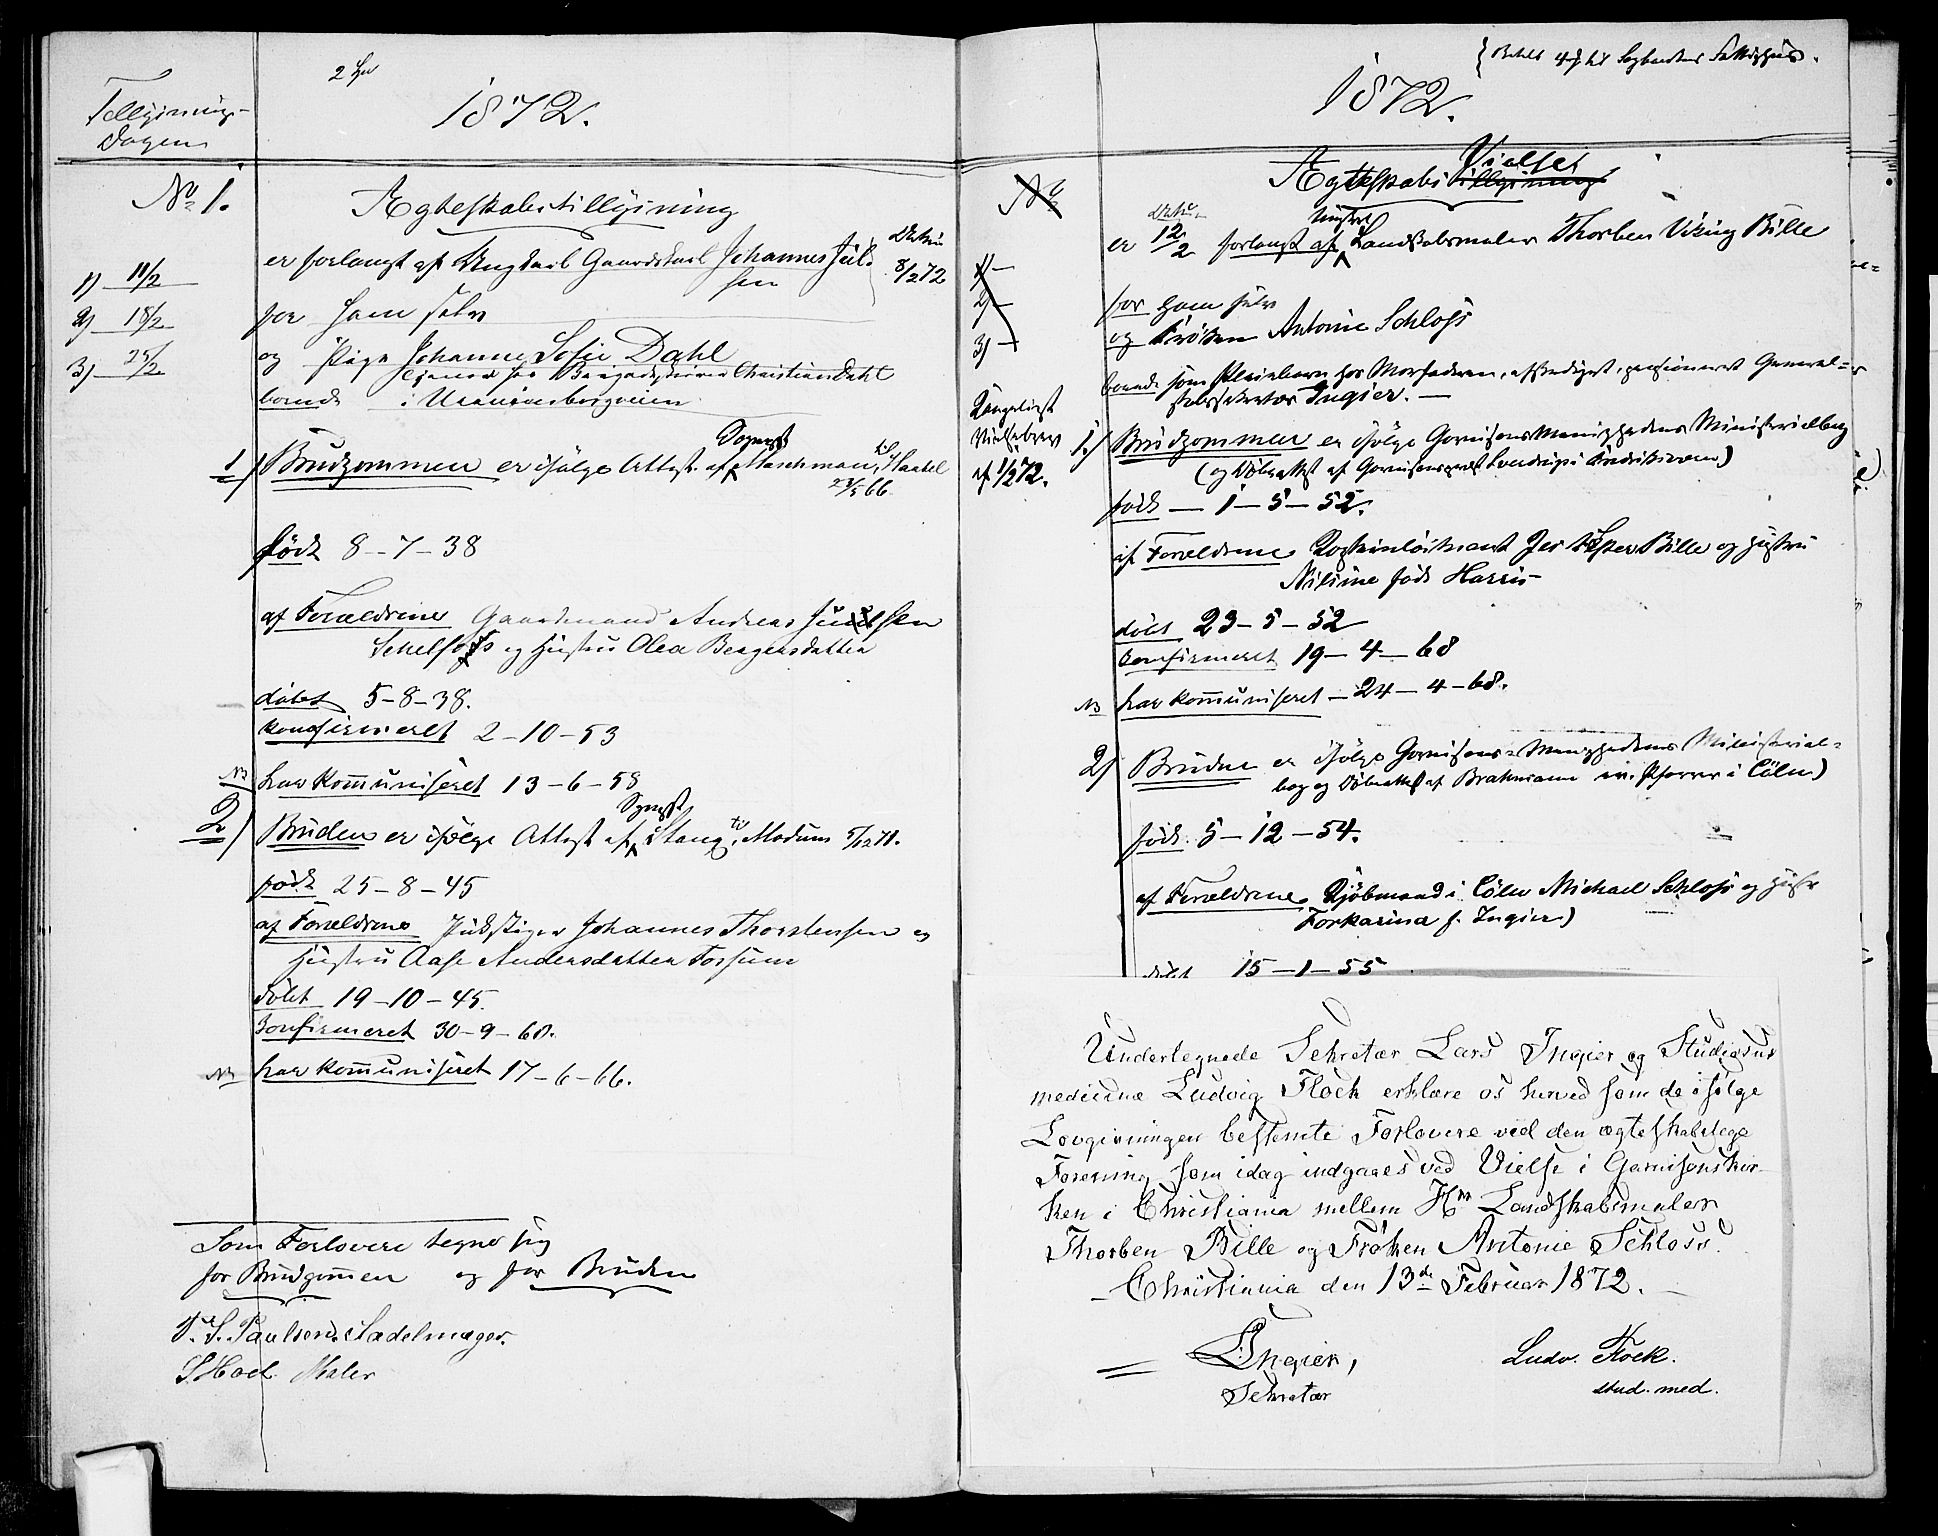 Tillysnings-
Dagen
1872.
No 1.
Ægteskabstillysning
er forlangt af Ungkarl Gaardskarl Johannes Juel-
sen
8/2 72
1) 11/2
2) 18/2
3) 25/2
for ham selv
og Pige Johanne Sofie Dahl
tjener hos Christian Dahl
boende i Uranienborgveien
1) Brudgommen er ifølge Attest af Sognepst Maschman til
født 8-7-38
af Forældrene Gaardmand Andreas Juelsen
og Hustru Olea Bengersdatter
døbt 5-8-38.
konfirmeret 2-10-53
NB har kommuniseret 13-6-58
2) Bruden er ifølge Attest af Sognepst Stang til Modum 5/12 71.
født 25-8-45
af Forældrene Johannes Thorstensen og
Hustru Aase Andersdatter Fossum
døbt 19-10-45.
Konfirmeret 30-9-60.
NB har kommuniseret 17-6-66.
Som Forlovere tegner sig
for Brudgommen og for Bruden
P. S. Paulsen. Sadelmager.
S. Hoel. Maler
1872.
Ægteskabs Vielse tillysning
No
er 12/2 forlangt af Ungkarl Landskabsmaler Thorben Viking Bille
1)
2)
3)
for ham selv
og Frøken Antonie Schloss
boende som Pleiebarn hos Morfaderen, afskediget, pensioneret General-
stabssekretær Ingier.
Kongeligt
Vielsebrev
af 1/2 72.
1.) Brudgommen er ifølge Garnisons Menighedens Ministerialbog
født 1-5-52.
af Forældrene Bille og Hustru
født Harris
døbt 23-5-52
konfirmeret 19-4-68
NB har kommuniseret 24-4-68.
2) Bruden er ifølge Garnisons-Menighedens Ministerial-
bog og Døbeattest af Brahmann ev. Pfarrer i Cöln)
født 5-12-54.
af Forældrene Kjøbmand i Cöln Michael Schloss og Hustr
f. Ingier)
døbt 15-1-55
Undertegnede Sekretær Lars Ingier og Studiosus
medicinæ Ludvig Flock erklære os herved som de ifølge
Lovgivningen bestemte Forlovere ved den ægteskabelige
Forening, som idag indgaaes ved Vielse i Garnisonskir-
ken i Christiania mellem Hrr Landskabsmaler
Thorben Bille og Frøken Antonie Schloss.
Christiania den 13de Februar 1872.
L. Ingier,
Sekretær
Ludv. Flock.
stud. med.